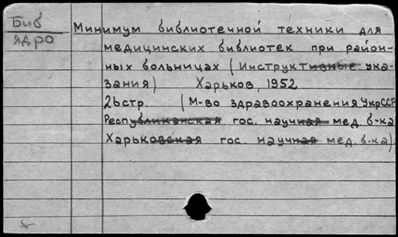 Биб
ядро
Минимум библиотечной техники для
медицинских библиотек при район-
ных больницах (Инструктивные ука-
зания) Харьков, 1952
26стр. (М-во здравоохранения УкрССР
Республиканская гос. научная мед. б-ка
Харьковская гос. научная мед. б-ка)